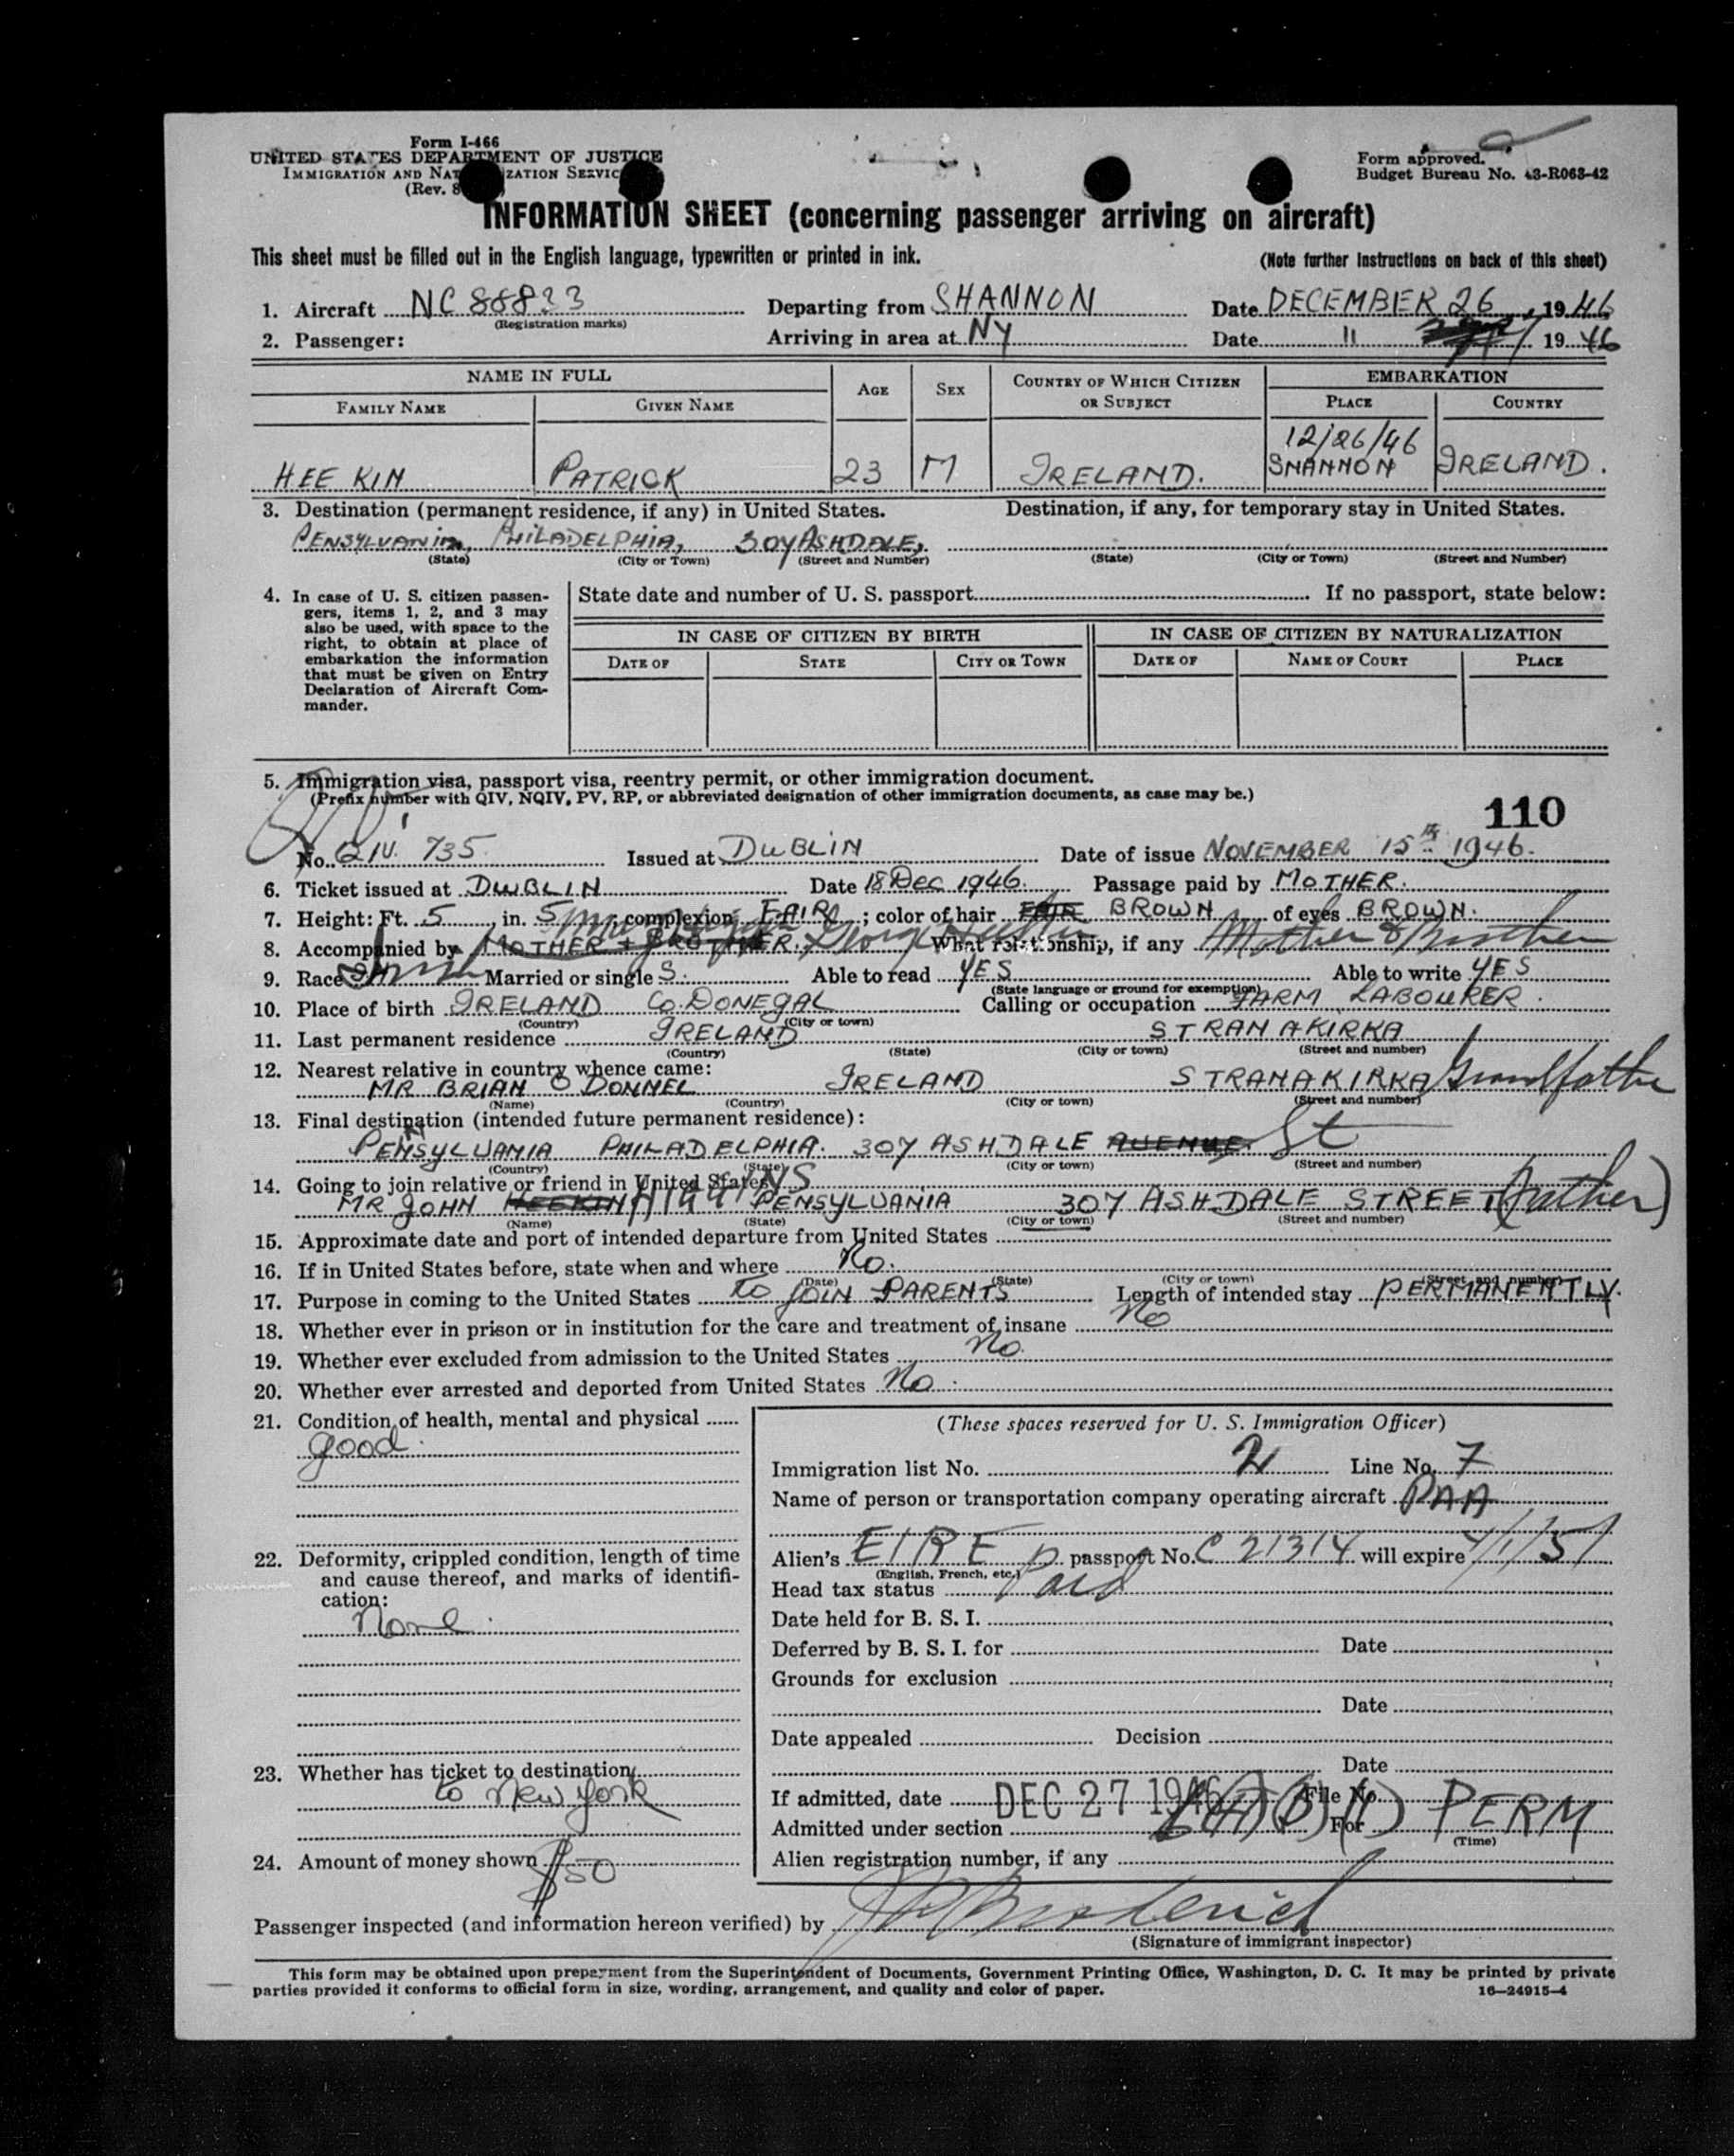 Form I-466
UNITED STATES DEPARTMENT OF JUSTICE
IMMIGRATION AND NAT ZATION SERVIC
(Rev. 8
Form approved.
Budget Bureau No. 43-R063-42
INFORMATION SHEET (concerning passenger arriving on aircraft)
This sheet must be filled out in the English language, typewritten or printed in ink. (Note further instructions on back of this sheet)
1. Aircraft NC 88833 Departing from SHANNON Date DECEMBER 26, 1946
(Registration marks)
2. Passenger: Arriving in area at NY Date 11 1946
NAME IN FULL AGE SEX COUNTRY OF WHICH CITIZEN OR SUBJECT EMBARKATION
FAMILY NAME GIVEN NAME PLACE COUNTRY
12/26/46
HEE KIN PATRICK 23 M IRELAND. SHANNON IRELAND.
3. Destination (permanent residence, if any) in United States. Destination, if any, for temporary stay in United States.
PENSYLVANIA, PHILADELPHIA, 307 ASHDALE,
(State) (City or Town) (Street and Number) (State) (City or Town) (Street and Number)
4. In case of U. S. citizen passengers, items 1, 2, and 3 may also be used, with space to the right, to obtain at place of embarkation the information that must be given on Entry Declaration of Aircraft Commander.
State date and number of U. S. passport If no passport, state below:
IN CASE OF CITIZEN BY BIRTH IN CASE OF CITIZEN BY NATURALIZATION
DATE OF STATE CITY OR TOWN DATE OF NAME OF COURT PLACE
5. Immigration visa, passport visa, reentry permit, or other immigration document.
(Prefix number with QIV, NQIV, PV, RP, or abbreviated designation of other immigration documents, as case may be.)
110
No. QIV. 735 Issued at DUBLIN Date of issue NOVEMBER 15th 1946.
6. Ticket issued at DUBLIN Date 18 Dec 1946. Passage paid by MOTHER.
7. Height: Ft. 5 in. 5 complexion FAIR; color of hair FAIR BROWN of eyes BROWN.
8. Accompanied by MOTHER + BROTHER. George What relationship, if any Mother & Brother
9. Race Irish Married or single S. Able to read YES Able to write YES
(State language or ground for exemption)
10. Place of birth IRELAND CO. DONEGAL Calling or occupation FARM LABOURER.
(Country) (City or town)
11. Last permanent residence IRELAND STRANAKIRKA
(Country) (State) (City or town) (Street and number)
12. Nearest relative in country whence came:
MR BRIAN O DONNEL IRELAND STRANAKIRKA Grandfather
(Name) (Country) (City or town) (Street and number)
13. Final destination (intended future permanent residence):
PENNSYLVANIA PHILADELPHIA. 307 ASHDALE AVENUE. St
(Country) (State) (City or town) (Street and number)
14. Going to join relative or friend in United States
MR JOHN HEEKIN HIGGINS PENSYLVANIA 307 ASHDALE STREET (father)
(Name) (State) (City or town) (Street and number)
15. Approximate date and port of intended departure from United States
16. If in United States before, state when and where No.
(Date) (State) (City or town) (Street and number)
17. Purpose in coming to the United States TO JOIN PARENTS Length of intended stay PERMANENTLY.
18. Whether ever in prison or in institution for the care and treatment of insane No
19. Whether ever excluded from admission to the United States No.
20. Whether ever arrested and deported from United States No.
21. Condition of health, mental and physical
good.
22. Deformity, crippled condition, length of time and cause thereof, and marks of identification:
None.
23. Whether has ticket to destination
to New York
24. Amount of money shown $50
(These spaces reserved for U. S. Immigration Officer)
Immigration list No. 2 Line No. 7
Name of person or transportation company operating aircraft PAA
Alien's EIRE passport No. C 21314 will expire 4/1/51
(English, French, etc.)
Head tax status Paid
Date held for B. S. I.
Deferred by B. S. I. for Date
Grounds for exclusion
Date
Date appealed Decision
Date
If admitted, date DEC 27 1946 File No.
Admitted under section For PERM
(Time)
Alien registration number, if any
Passenger inspected (and information hereon verified) by
(Signature of immigrant inspector)
This form may be obtained upon prepayment from the Superintendent of Documents, Government Printing Office, Washington, D. C. It may be printed by private
parties provided it conforms to official form in size, wording, arrangement, and quality and color of paper. 16—24915-4